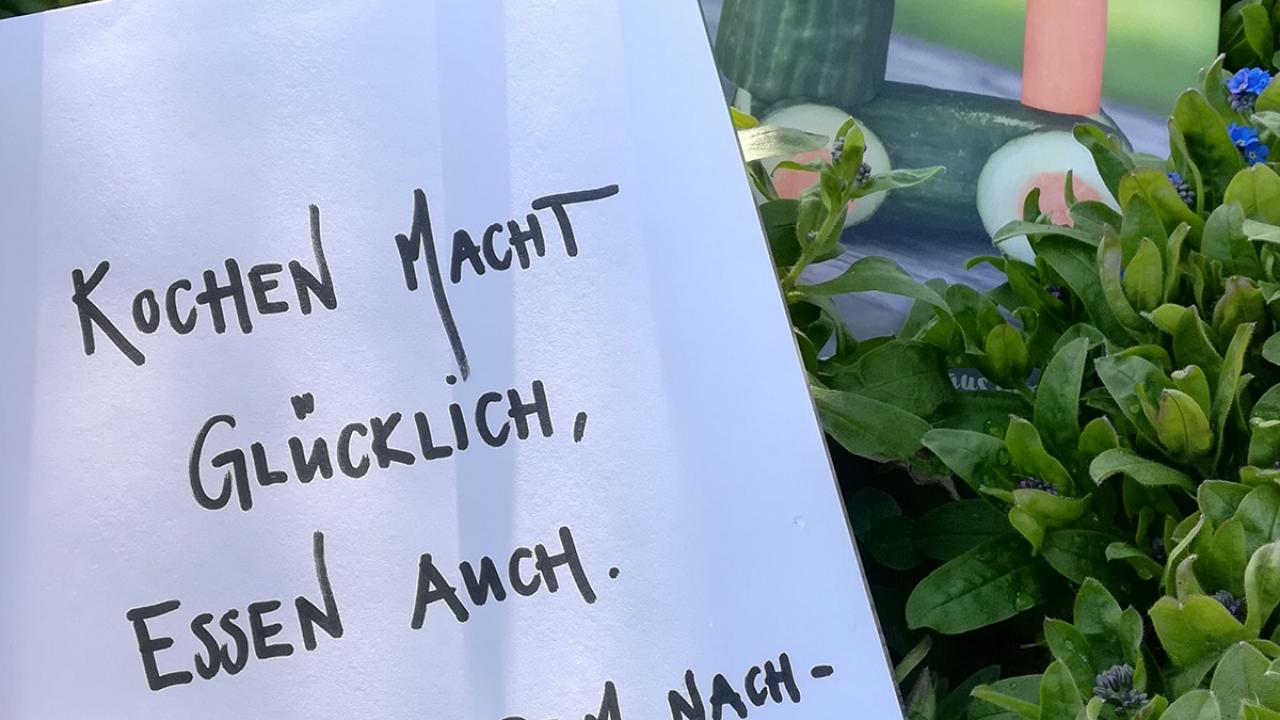 Kochen Macht
Glücklich,
Essen Auch.
Nach-